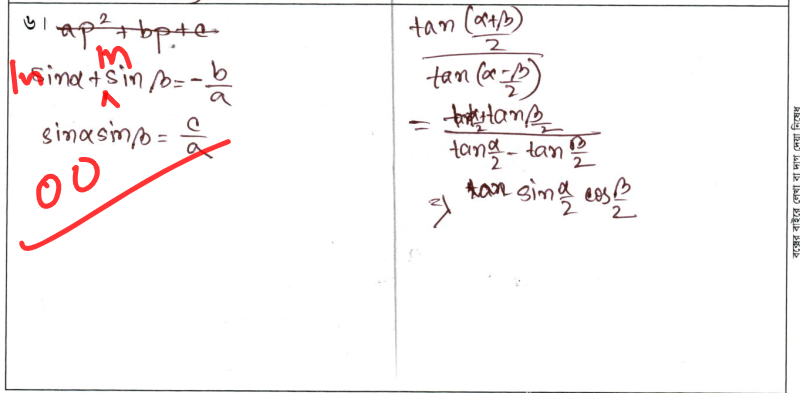 ৬। ap² + bp + c
m
sinα + sin β = - b/a
sinα sinβ = c/a
00
tan (α+β)/2
tan (α-β/2)
= tan α/2 + tan β/2
tan α/2 - tan β/2
⇒ tan sin α/2 cos β/2
বক্সের বাইরে লেখা বা দাগ দেয়া নিষেধ